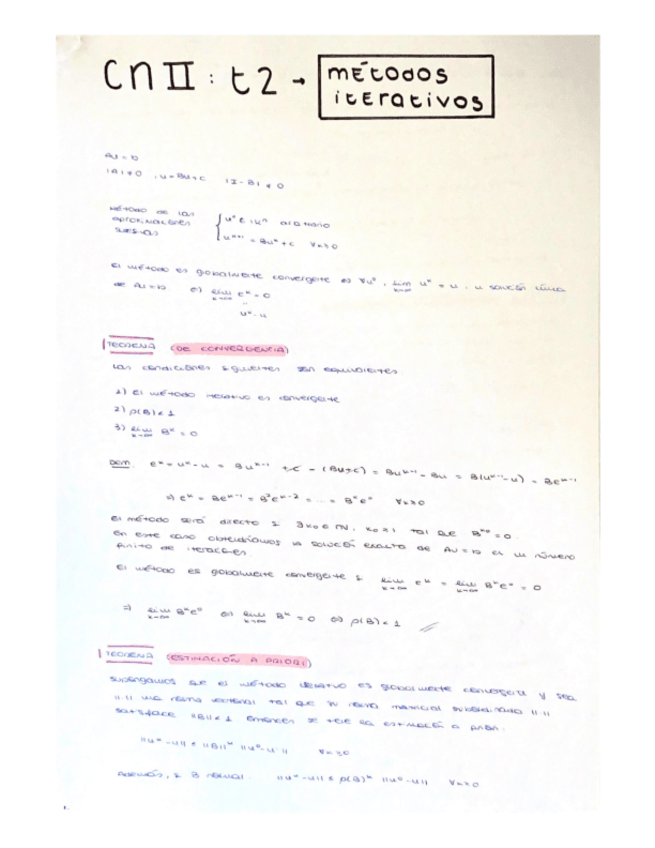 CN II : t2 → métodos
iterativos
Au = b
|A| ≠ 0 , u = Bu + c |I - B| ≠ 0
método de las
aproximaciones
sucesivas
u⁰ ∈ ℝⁿ arbitrario
uᵏ⁺¹ = Buᵏ + c ∀k ≥ 0
El método es globalmente convergente ⇔ ∀u⁰, lim uᵏ = u, u solución única
k→∞
de Au = b ⇔ lim eᵏ = 0
k→∞
uᵏ - u
TEOREMA (DE CONVERGENCIA)
Las condiciones siguientes son equivalentes
1) El método iterativo es convergente
2) ρ(B) < 1
3) lim Bᵏ = 0
k→∞
Dem eᵏ = uᵏ - u = Buᵏ⁻¹ + c - (Bu + c) = Buᵏ⁻¹ - Bu = B(uᵏ⁻¹ - u) = Beᵏ⁻¹
⇒ eᵏ = Beᵏ⁻¹ = B²eᵏ⁻² = ... = Bᵏe⁰ ∀k ≥ 0
El método será directo si ∃k₀ ∈ ℕ, k₀ ≥ 1 tal que Bᵏ⁰ = 0.
En este caso obtendríamos la solución exacta de Au = b en un número
finito de iteraciones.
El método es globalmente convergente si lim eᵏ = lim Bᵏe⁰ = 0
k→∞ k→∞
⇒ lim Bᵏe⁰ ⇔ lim Bᵏ = 0 ⇔ ρ(B) < 1
k→∞ k→∞
TEOREMA (ESTIMACIÓN A PRIORI)
Supongamos que el método iterativo es globalmente convergente y sea
||·|| una norma vectorial tal que su norma matricial subordinada ||·||
satisface ||B|| < 1 entonces se tiene la estimación a priori.
||uᵏ - u|| ≤ ||B||ᵏ ||u⁰ - u|| ∀k ≥ 0
Además, si B normal ||uᵏ - u|| ≤ ρ(B)ᵏ ||u⁰ - u|| ∀k ≥ 0
1.